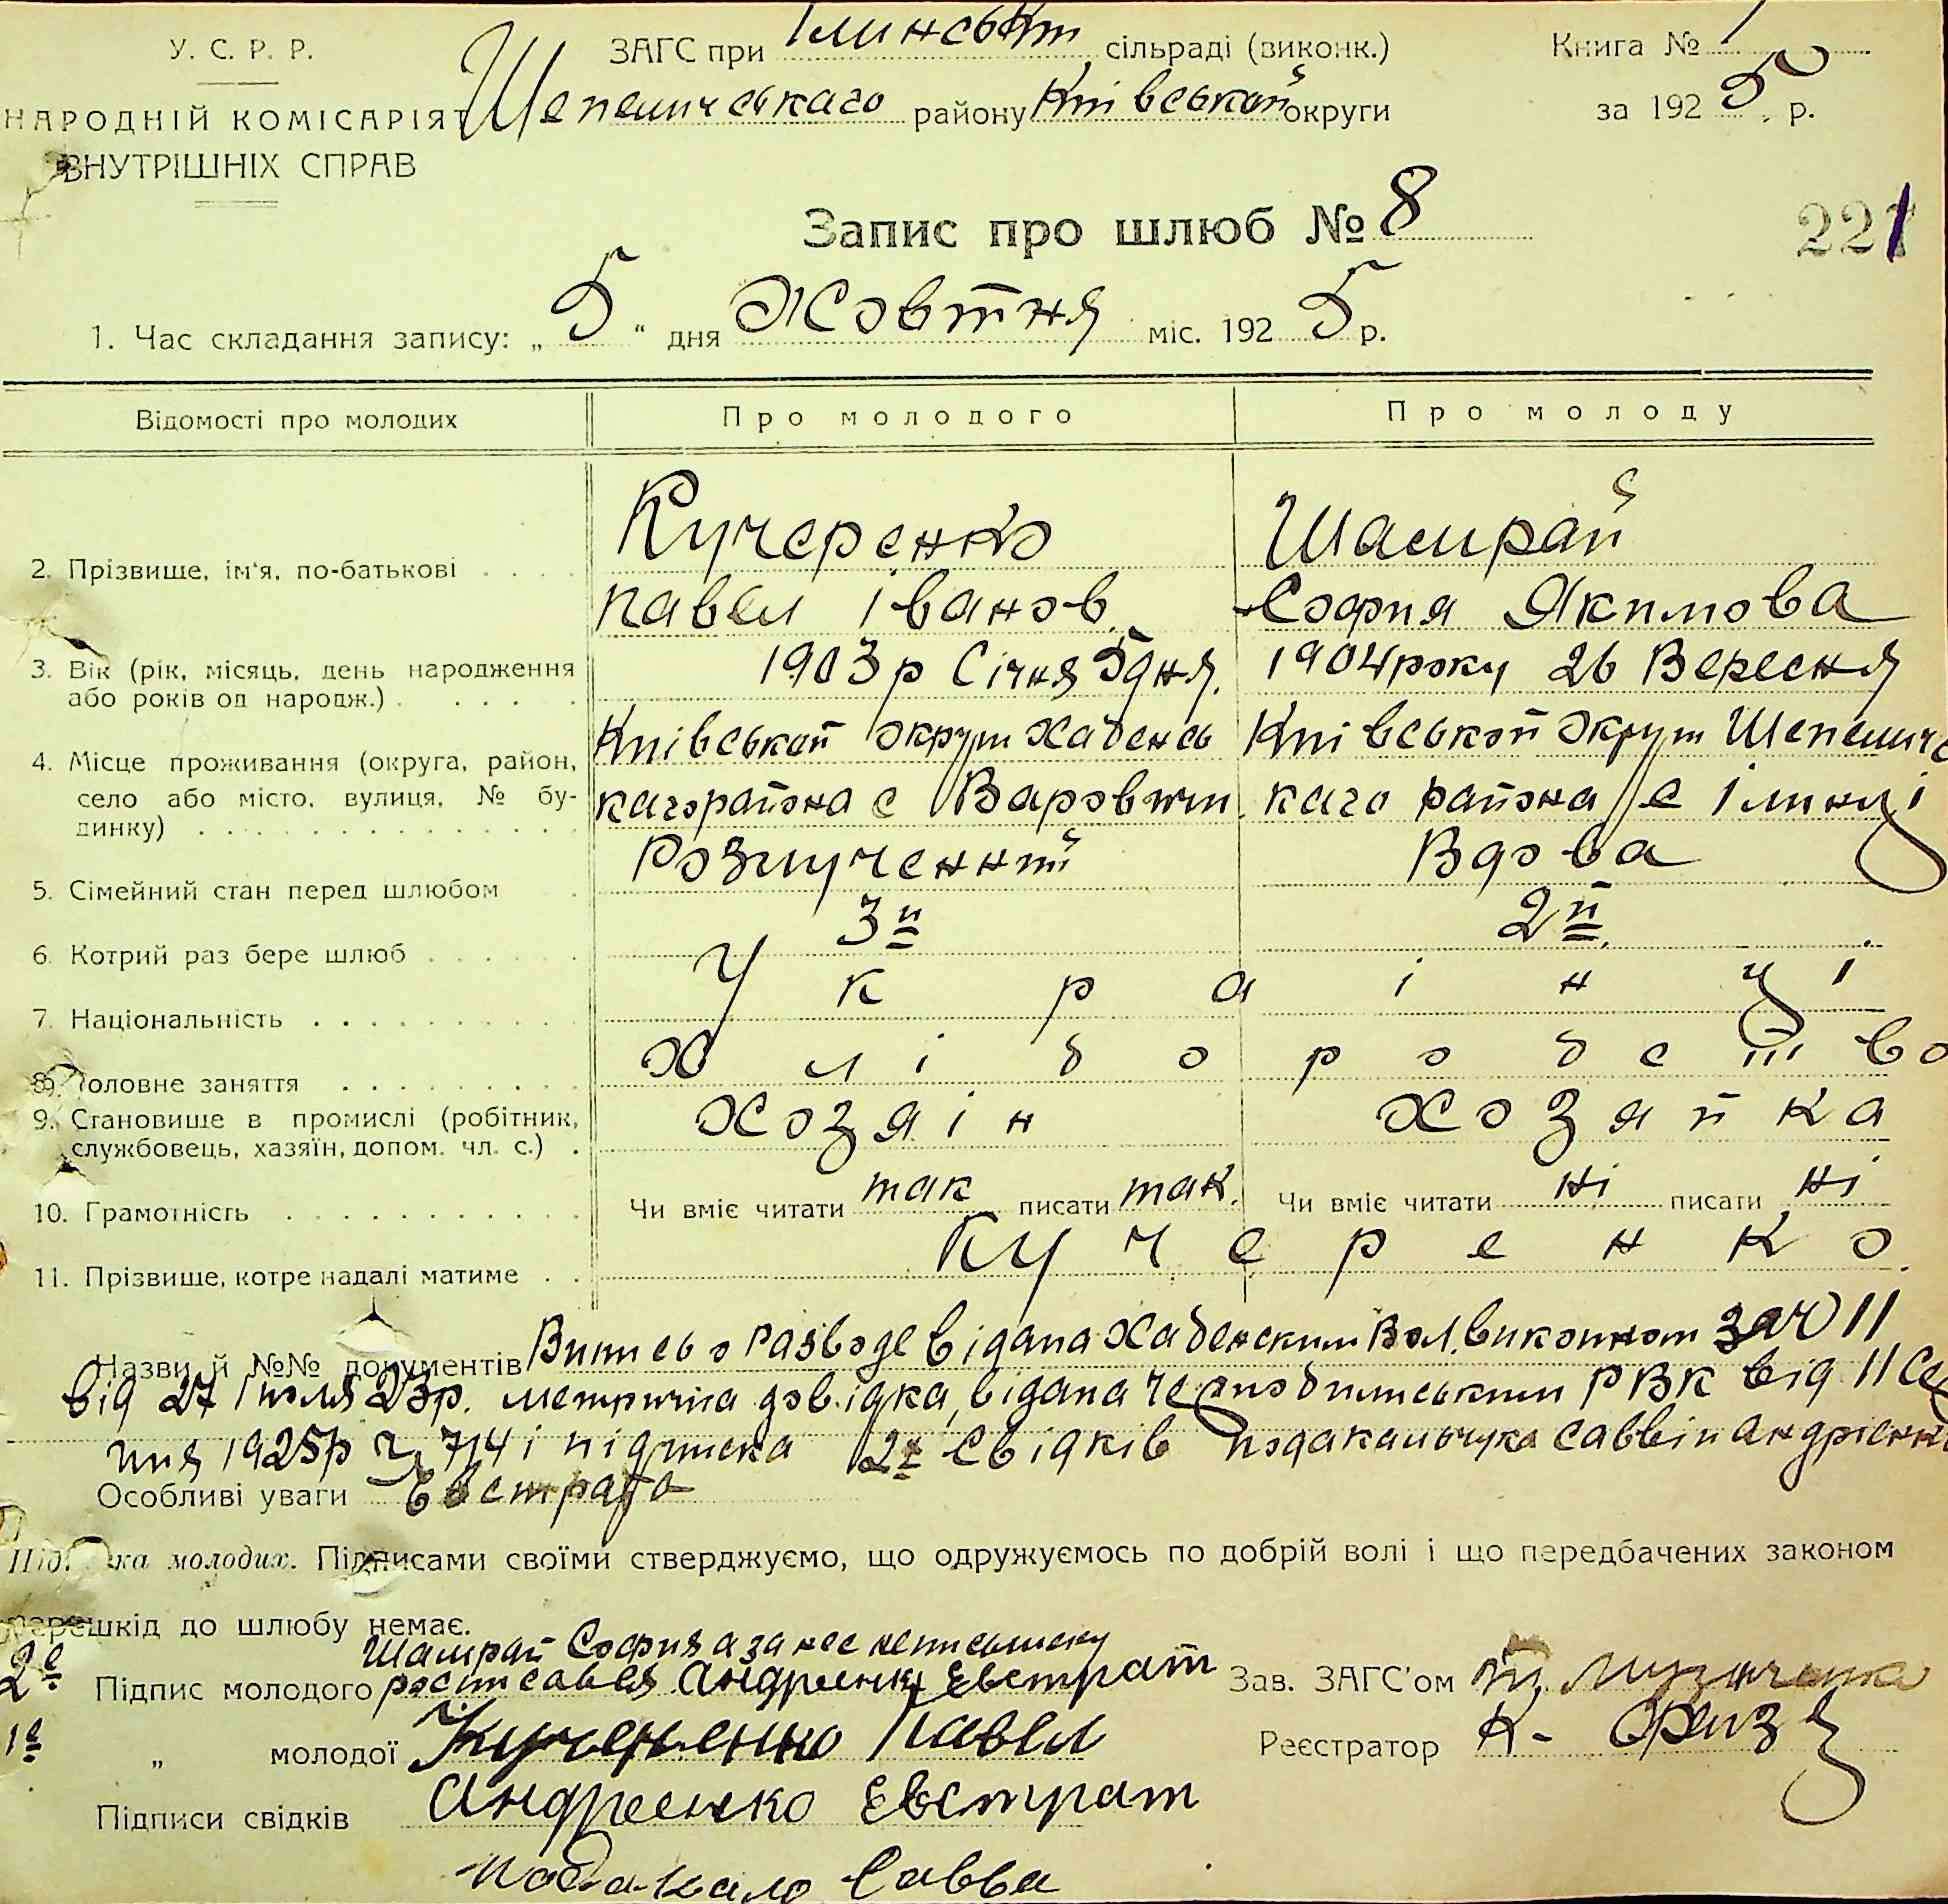 У. С. Р. Р.
НАРОДНІЙ КОМІСАРІЯТ
ВНУТРІШНІХ СПРАВ
ЗАГС при Ілинський сільраді (виконк.)
Шепеличськаго району Київськой округи
Книга № 1
за 1925 р.
Запис про шлюб № 8
221
1. Час складання запису: „5" дня Жовтня міс. 1925 р.
Відомості про молодих Про молодого Про молоду
2. Прізвище, ім'я, по-батькові Кучеренко Шамрай
Павел Іванов. София Якимова
3. Вік (рік, місяць, день народження або років од народж.) 1903 р Січня 5 дня. 1904 року 26 Вересня
4. Місце проживання (округа, район, село або місто, вулиця, № будинку) Київськой округи Хабенсь Київськой округи Шепеличс
кагорайона с Варовичи. каго района с Ілинці
5. Сімейний стан перед шлюбом Розлученний Вдова
6. Котрий раз бере шлюб 3й 2й
7. Національність Українці
8. Головне заняття Хліборобство
9. Становище в промислі (робітник, службовець, хазяїн, допом. чл. с.) Хозяін Хозяйка
10. Грамотність Чи вміє читати так писати так. Чи вміє читати ні писати ні
11. Прізвище, котре надалі матиме Кучеренко.
Назви й №№ документів Випись о разводе відана Хабенским Вол.виконком за Ч 11
від 27 Іюля 23р. метрична довідка, відана РВК від 11 Сер
пня 1925р ч. 714 і підписка 2х Свідків Саввіи Андріенк
Особливі уваги Евстрата
Підписка молодих. Підписами своїми стверджуємо, що одружуємось по добрій волі і що передбачених законом
перешкід до шлюбу немає.
Шамрай София а за нее неписьмену
2е Підпис молодого росписался Андреенко Евстрат Зав. ЗАГС'ом
1е „ молодої Кучеренко Павел Реєстратор К.
Підписи свідків Андреенко Евстрат
Савва